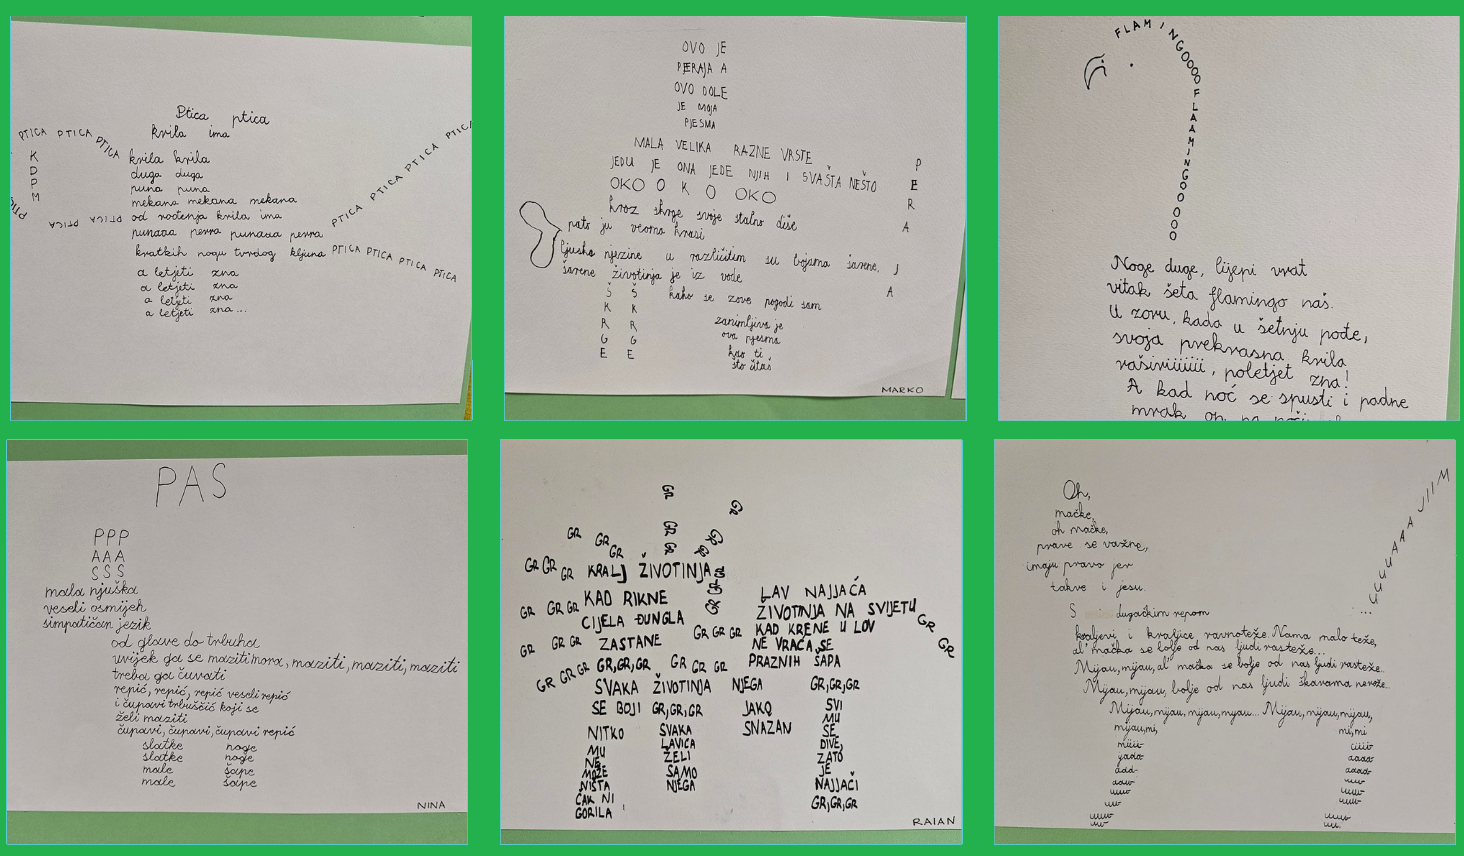 Ptica ptica
krila ima
PTICA PTICA PTICA
K
D
P
M
krila krila
duga duga
puna puna
mekana mekana mekana
od rođenja krila ima
PTICA PTICA
punaaa perra punaaa perra
kratkih nogu tvrdog kljuna
PTICA PTICA PTICA PTICA
PTICA PTICA PTICA PTICA
a letjeti zna
a letjeti zna
a letjeti zna
a letjeti zna...
OVO JE
PERAJA A
OVO DOLE
JE MOJA
PJESMA
MALA VELIKA RAZNE VRSTE
JEDU JE ONA JEDE NJIH I SVAŠTA NEŠTO
OKO O K O OKO
kroz škrge svoje stalno diše
pato ju veoma krasi
ljuska njezine u različitim su bojama šarene,
šarene životinja je iz vode
kako se zove pogodi sam
Š Š
K K
R R
G G
E E
zanimljiva je
ova pjesma
kao ti
što čitaš
P
E
R
A
J
A
MARKO
FLAMINGOOOO
FLAAMINGOOOOOO
Noge duge, lijepi vrat
vitak šeta flamingo naš.
U zoru, kada u šetnju pođe,
svoja prekrasna krila
raširiiiiiii, poletjet zna!
A kad noć se spusti i padne
mrak
PAS
PPP
AAA
SSS
mala njuška
veseli osmijeh
simpatičan jezik
od glave do trbuha
uvijek ga se maziti mora, maziti, maziti, maziti
treba ga čuvati
repić, repić, repić veseli repić
i čupavi trbuščić koji se
želi maziti
čupavi, čupavi, čupavi repić
slatke noge
slatke noge
male šape
male šape
NINA
GR
GR GR
GR GR
GR GR
GR
GR GR
GR GR GR
KRALJ ŽIVOTINJA
GR GR GR
KAD RIKNE
CIJELA DUNGLA
GR GR GR
ZASTANE
GR GR GR
GR GR GR
GR,GR,GR
GR GR GR
LAV NAJJAĆA
ŽIVOTINJA NA SVIJETU
KAD KRENE U LOV
NE VRAĆA SE
PRAZNIH ŠAPA
GR
GR
SVAKA ŽIVOTINJA NJEGA
SE BOJI GR,GR,GR JAKO
SNAZAN
NITKO
MU
NE
MOŽE
NIŠTA
ČAK NI
GORILA
SVAKA
LAVICA
ŽELI
SAMO
NJEGA
GR,GR,GR
SVI
MU
SE
DIVE,
ZATO
JE
NAJJAČI
GR,GR,GR
RAIAN
Oh,
mačke,
oh mačke,
prave se važne,
imaju pravo jer
takve i jesu.
S dugačkim repom
kraljevi i kraljice ravnoteže. Nama malo teže,
al' mačka se bolje od nas ljudi rasteže...
Mijau, mijau, al' mačka se bolje od nas ljudi rasteže..
Mijau, mijau, bolje od nas ljudi
Mijau, mijau, mijau, myau... Mijau, mijau, mijau,
mijau, mi,
mi, mi
MIJUAAAUUUU...